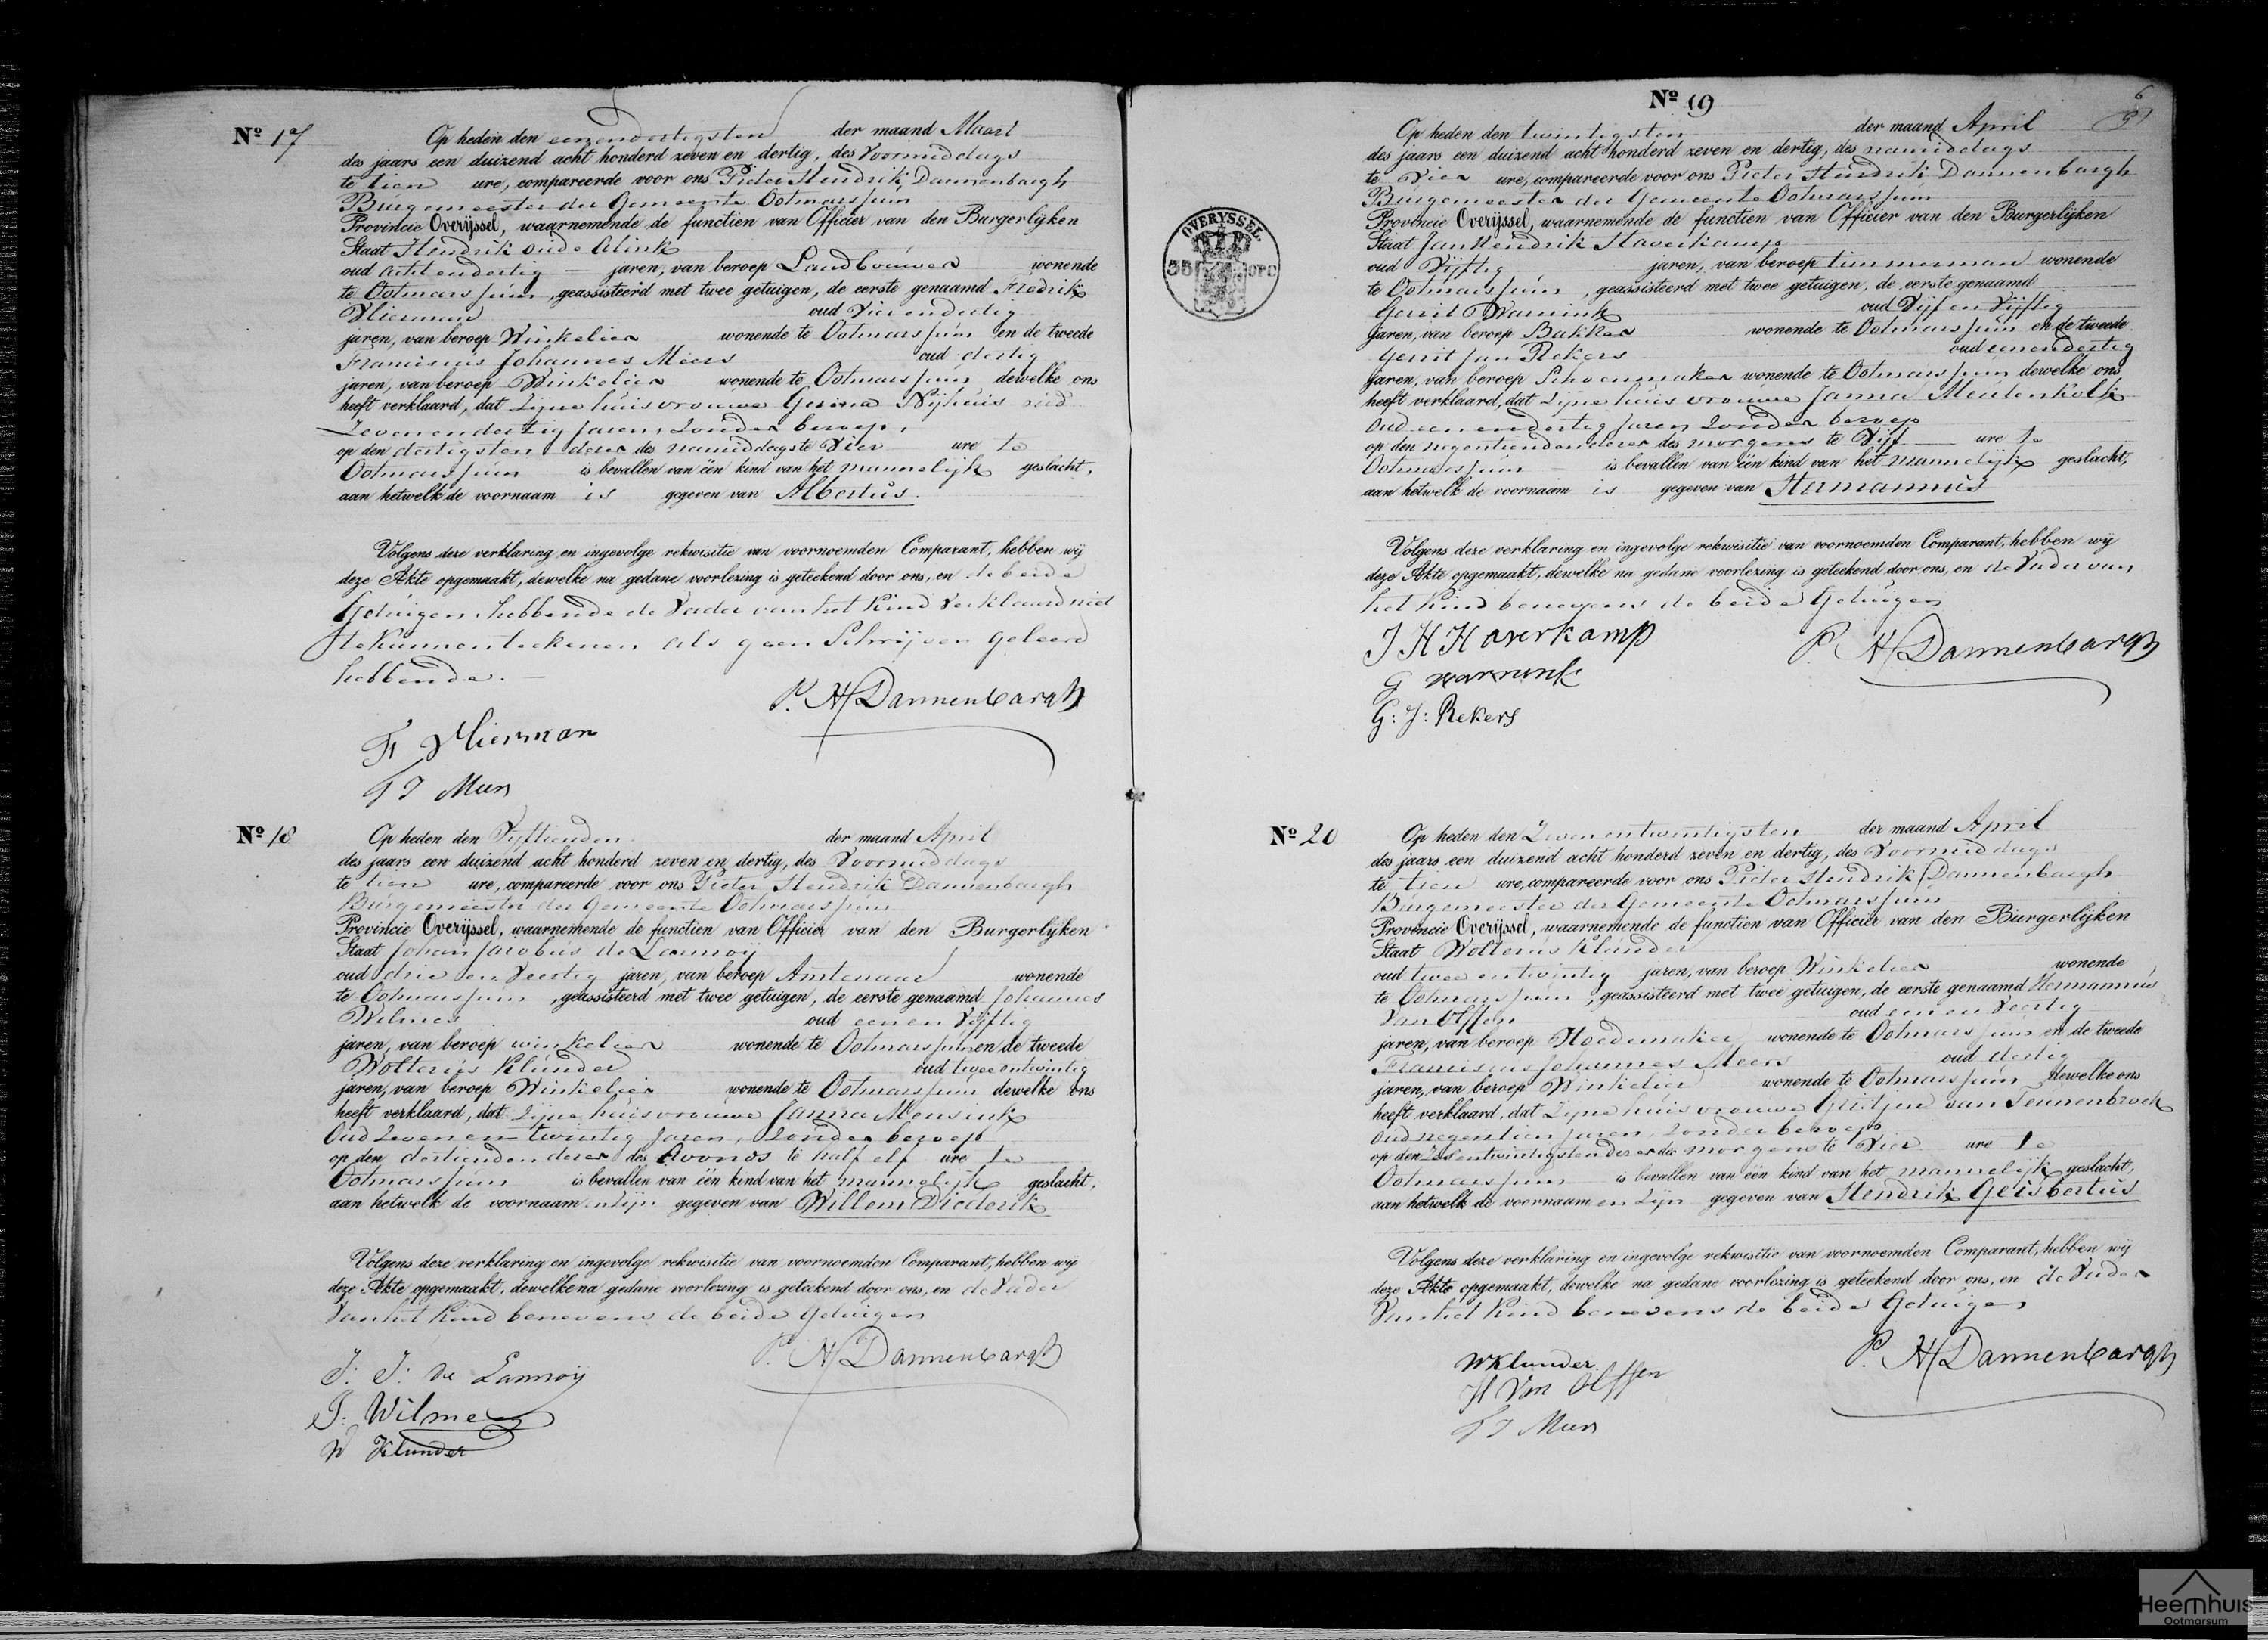 Nº 17
Op heden den eenendertigsten der maand Maart
des jaars een duizend acht honderd zeven en dertig, des Voormiddags
te tien ure, compareerde voor ons Pieter Hendrik Dannenbargh
Burgemeester der Gemeente Ootmarssum
Provincie Overijssel, waarnemende de functien van Officier van den Burgerlijken
Staat Hendrik oude Alink
oud achtendertig jaren, van beroep Landbouwer wonende
te Ootmarssum, geassisteerd met twee getuigen, de eerste genaamd Fredrik
Vlierman oud Vierendertig
jaren, van beroep Winkelier wonende te Ootmarssum en de tweede
Franciscus Johannes Meers oud dertig
jaren, van beroep Winkelier wonende te Ootmarssum dewelke ons
heeft verklaard, dat zijne huisvrouwe Gesina Nijhuis oud
Zevenendertig Jaren, zonder beroep,
op den dertigsten dezer des namiddags te Vier ure te
Ootmarssum is bevallen van één kind van het mannelijk geslacht,
aan hetwelk de voornaam is gegeven van Albertus.
Volgens deze verklaring en ingevolge rekwisitie van voornoemden Comparant, hebben wij
deze Akte opgemaakt, dewelke na gedane voorlezing is geteekend door ons, en de beide
Getuigen, hebbende de Vader van het Kind verklaard niet
te kunnen teekenen als geen Schrijven geleerd
hebbende.
P. H Dannenbargh
F Vlierman
F J Meers
Nº 18
Op heden den Vijftienden der maand April
des jaars een duizend acht honderd zeven en dertig, des Voormiddags
te tien ure, compareerde voor ons Pieter Hendrik Dannenbargh
Burgemeester der Gemeente Ootmarssum
Provincie Overijssel, waarnemende de functien van Officier van den Burgerlijken
Staat Johan Jacobus de Lannoij
oud drie en Veertig jaren, van beroep Amtenaar wonende
te Ootmarssum, geassisteerd met twee getuigen, de eerste genaamd Johannes
Wilmes oud een en Vijftig
jaren, van beroep winkelier wonende te Ootmarssum en de tweede
Wolterus Klunder oud twee entwintig
jaren, van beroep Winkelier wonende te Ootmarssum dewelke ons
heeft verklaard, dat zijne huisvrouwe Janna Mensink
Oud Zeven en twintig Jaren, zonder beroep
op den dertienden dezer des Avonds te half elf ure te
Ootmarssum is bevallen van één kind van het mannelijk geslacht,
aan hetwelk de voornaamen zijn gegeven van Willem Diederik
Volgens deze verklaring en ingevolge rekwisitie van voornoemden Comparant, hebben wij
deze Akte opgemaakt, dewelke na gedane voorlezing is geteekend door ons, en de Vader
Van het Kind benevens de beide Getuigen
P. H Dannenbargh
J: J: de Lannoij
J. Wilmes
W Klunder
OVERYSSEL
Nº 19
6
Op heden den twintigsten der maand April
des jaars een duizend acht honderd zeven en dertig, des namiddags
te Vier ure, compareerde voor ons Pieter Hendrik Dannenbargh
Burgemeester der Gemeente Ootmarssum
Provincie Overijssel, waarnemende de functien van Officier van den Burgerlijken
Staat Jan Hendrik Haverkamp
oud Vijftig jaren, van beroep timmerman wonende
te Ootmarssum, geassisteerd met twee getuigen, de eerste genaamd
Gerrit Warnink oud Vijf en Vijftig
jaren, van beroep Bakker wonende te Ootmarssum en de tweede
Gerrit Jan Rekers oud eenendertig
jaren, van beroep Schoenmaker wonende te Ootmarssum dewelke ons
heeft verklaard, dat zijne huisvrouwe Janna Meulenkolk
Oud eenendertig Jaren zonder beroep
op den negentienden dezer des morgens te Vijf ure te
Ootmarssum is bevallen van één kind van het mannelijk geslacht,
aan hetwelk de voornaam is gegeven van Hermannus
Volgens deze verklaring en ingevolge rekwisitie van voornoemden Comparant, hebben wij
deze Akte opgemaakt, dewelke na gedane voorlezing is geteekend door ons, en de Vader van
het Kind benevens de beide Getuigen
J H Haverkamp
P. H Dannenbargh
G warnink
G: J: Rekers
Nº 20
Op heden den Zevenentwintigsten der maand April
des jaars een duizend acht honderd zeven en dertig, des Voormiddags
te tien ure, compareerde voor ons Pieter Hendrik Dannenbargh
Burgemeester der Gemeente Ootmarssum
Provincie Overijssel, waarnemende de functien van Officier van den Burgerlijken
Staat Wolterus Klunder
oud twee entwintig jaren, van beroep Winkelier wonende
te Ootmarssum, geassisteerd met twee getuigen, de eerste genaamd Hermannus
Van Olffen oud een en Veertig
jaren, van beroep Hoedemaker wonende te Ootmarssum en de tweede
Franciscus Johannes Meers oud dertig
jaren, van beroep Winkelier wonende te Ootmarssum dewelke ons
heeft verklaard, dat zijne huisvrouwe Gristjen van Teunenbroek
Oud negentien Jaren, zonder beroep
op den Zesentwintigsten dezer des morgens te Vier ure te
Ootmarssum is bevallen van één kind van het mannelijk geslacht,
aan hetwelk de voornaamen zijn gegeven van Hendrik Geisbertus
Volgens deze verklaring en ingevolge rekwisitie van voornoemden Comparant, hebben wij
deze Akte opgemaakt, dewelke na gedane voorlezing is geteekend door ons, en de Vader
Van het Kind benevens de beide Getuigen
P. H Dannenbargh
W Klunder
H Van Olffen
F J Meers
Heemhuis
Ootmarsum